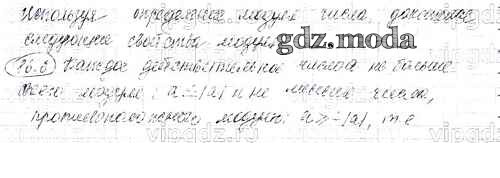 Используя определение модуля числа, докажите
следующие свойства модуля
gdz.moda
16.6 Каждое действительное число a не больше
своего модуля: a ≤ |a| и не меньше числа,
противоположного модулю: a ≥ -|a|, т.е
vipgdz.ru